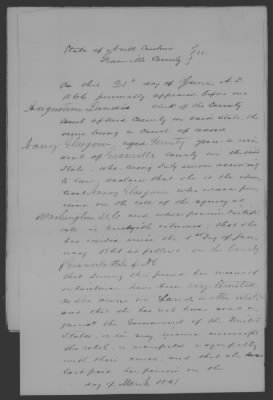 State of North Carolina }
Granville County } SS.
On this 21st day of June A.D.
1866 personally appeared before me
Augustine Landis Clerk of the County
Court of said County in said State, the
same being a court of record
Nancy Glasgow, aged Seventy years a resi
dent of Granville County in the said
State, who being duly sworn according
to law, declares that she is the iden
tical Nancy Glasgow who was a pen
sioner on the roll of the agency at
Washington D.C. and whose pension certifi
cate is herewith returned; that she
has resided since the 1st day of Jan
uary 1861 as follows: in the County
of Granville State of NC
that during this period her means of
subsistence have been very limited
as she owns no Lands or other
and that she has not borne arms a
gainst the Government of the United
States or in any manner encouraged
the rebels or manifested a sympathy
with their cause; and that she was
last paid her pension on the
day of March 1861